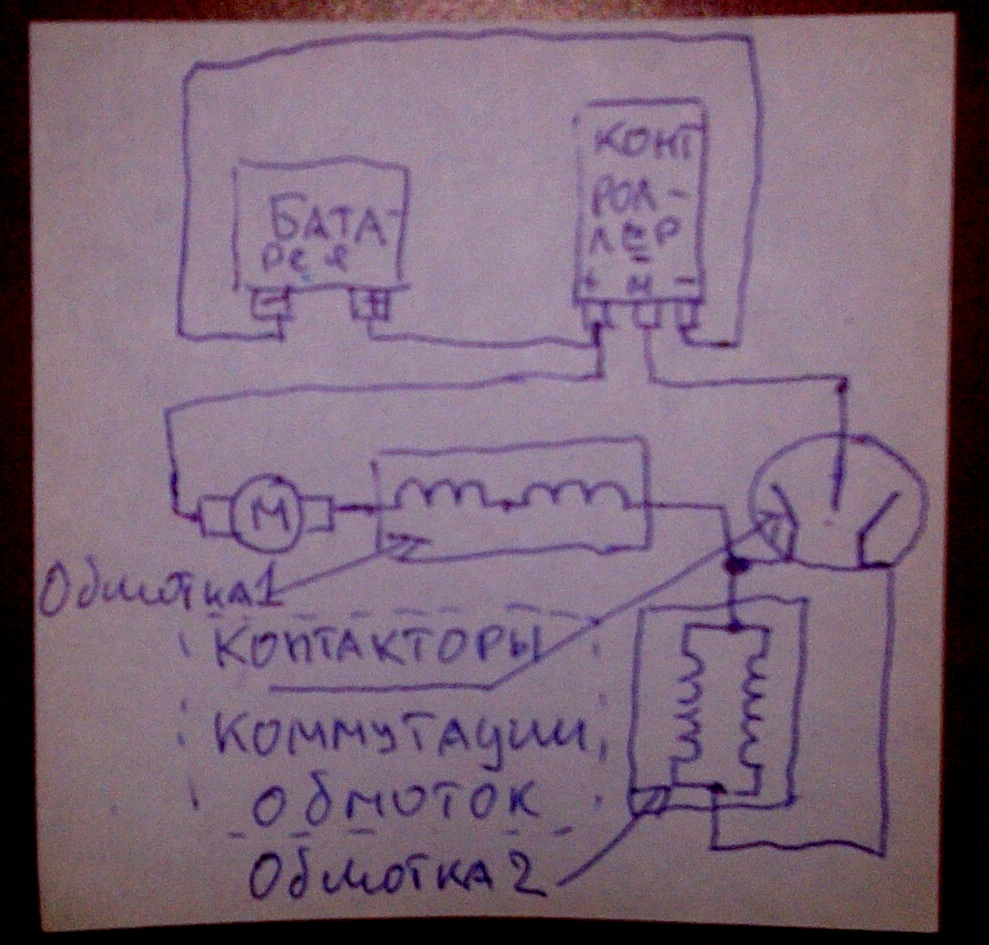 БАТА-
рея
- +
КОНТ
РОЛ-
ЛЕР
+ м -
М
Обмотка1
КОНТАКТОРЫ
КОММУТАЦИИ
ОБМОТОК
Обмотка 2